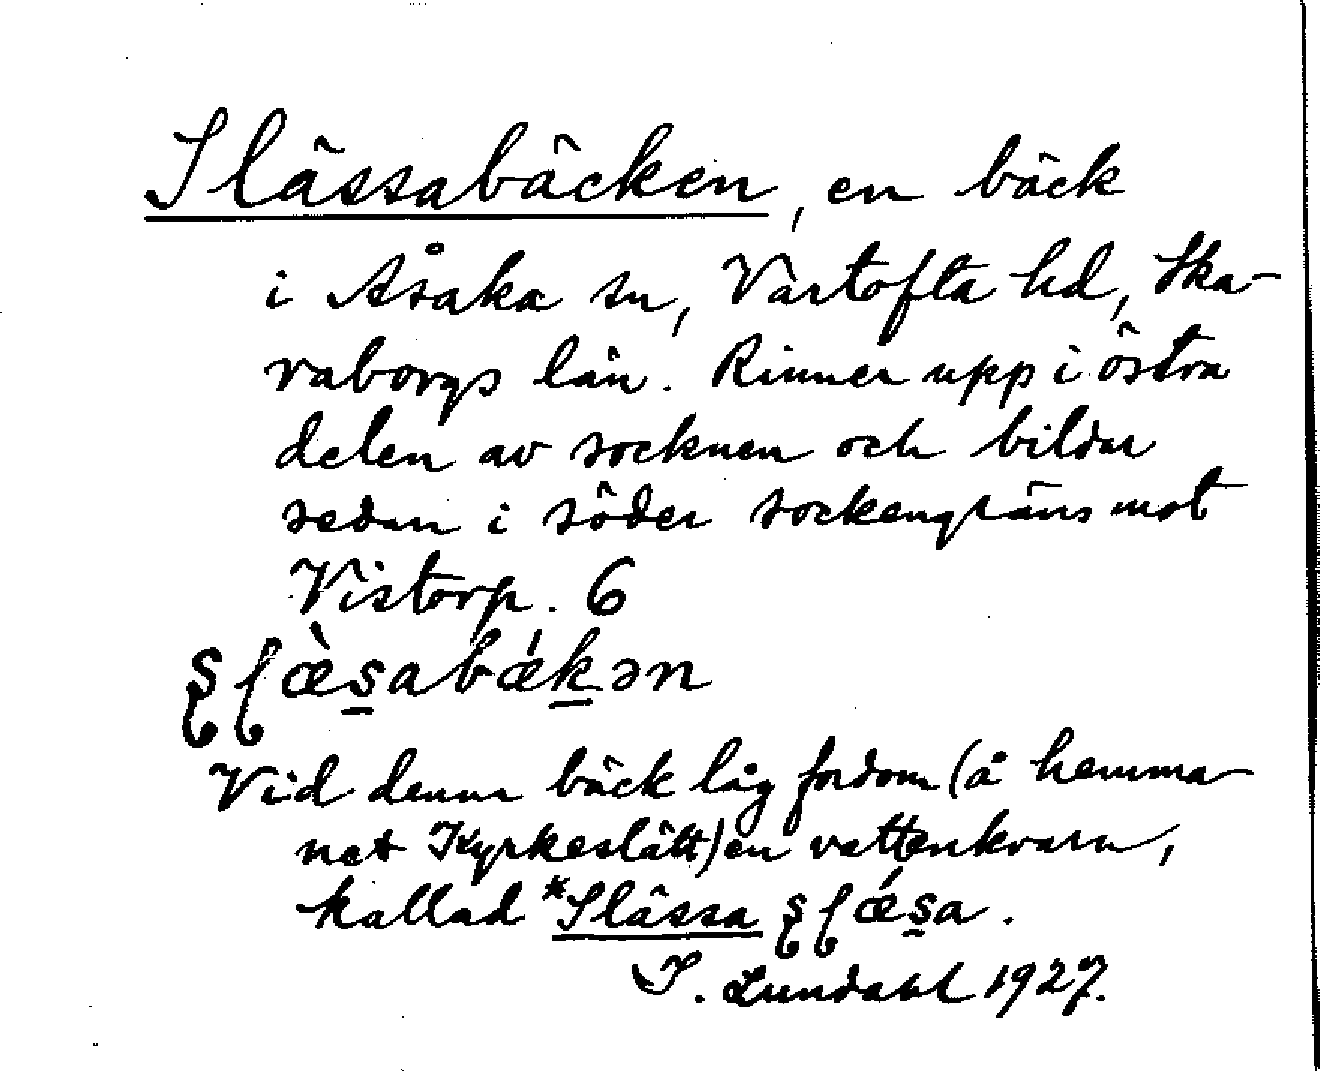 Slässabäcken, en bäck
i Åsaka sn, Vartofta hd, Ska-
raborgs län. Rinner upp i östra
delen av socknen och bildar
sedan i söder sockengräns mot
Vistorp. 6
ʂɭæ̀s̠abǽk̠ən
Vid denna bäck låg fordom (å hemma-
net Kyrkeslätt) en vattenkvarn,
kallad *Slässa ʂɭǽs̠a.
I. Lundahl 1927.